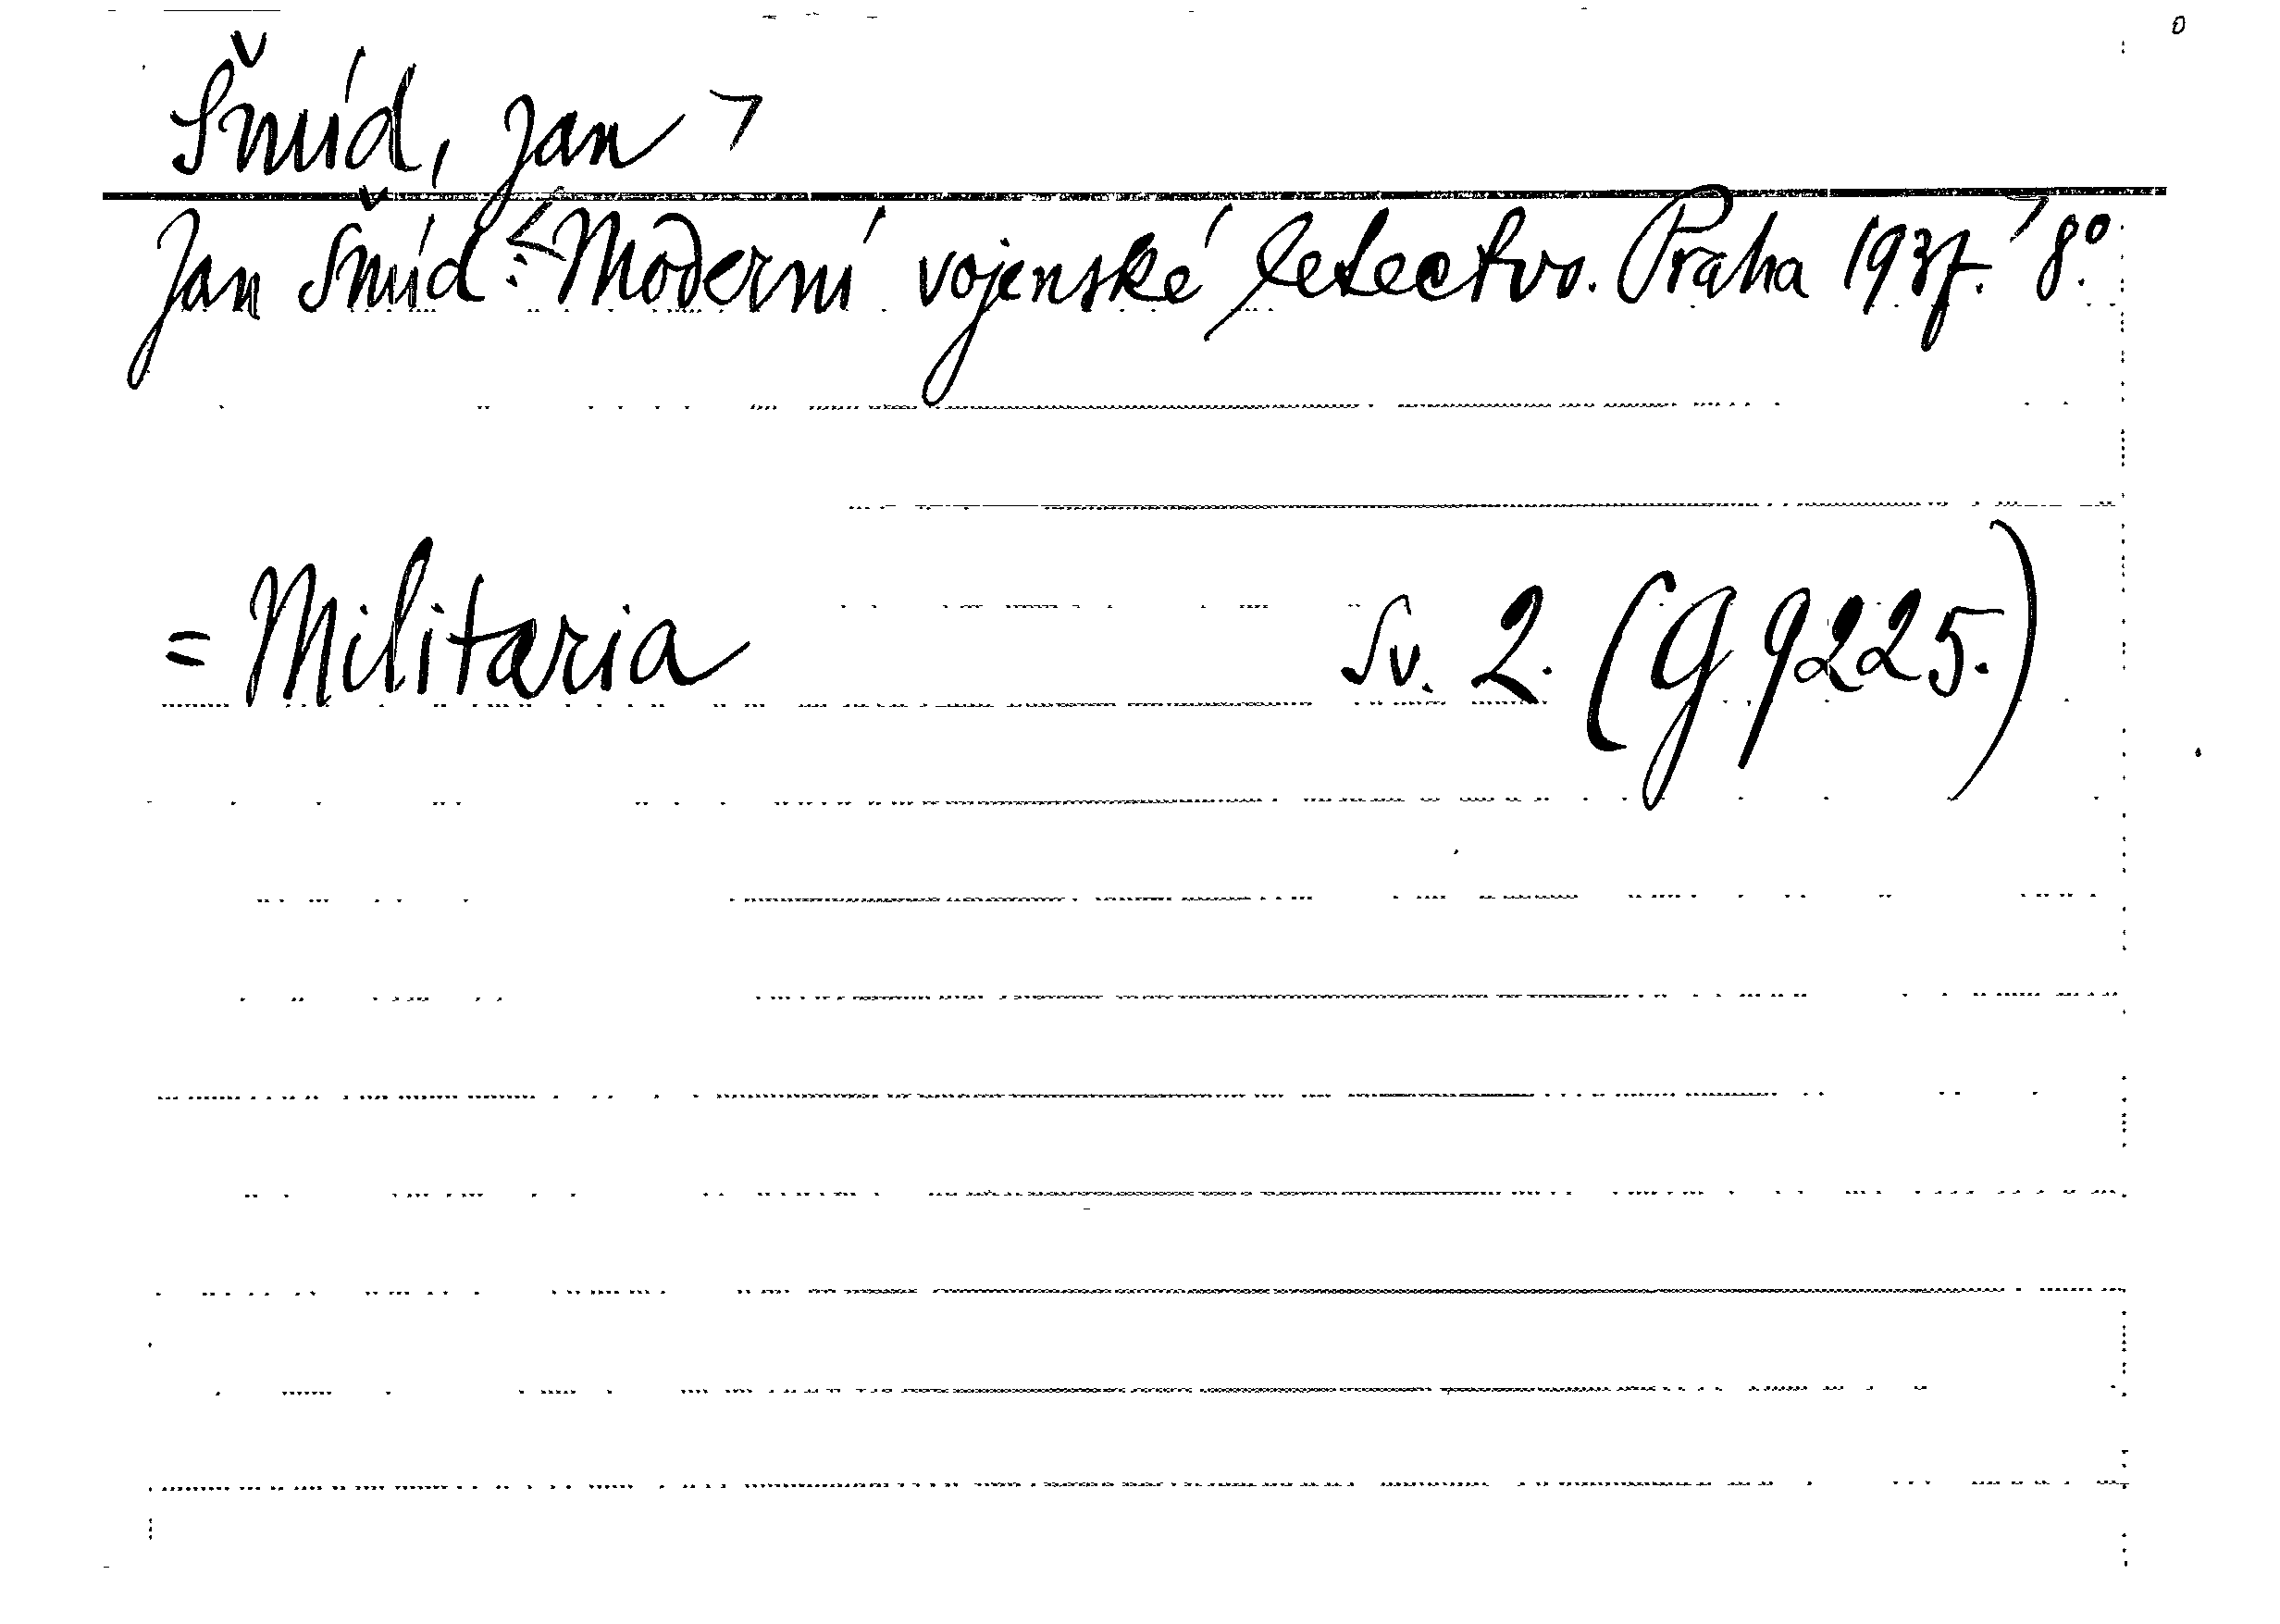 Šmíd, Jan >
Jan Šmíd: <Moderní vojenské letectvo. Praha 1937.> 8°.
= Militaria Sv. 2. (G 9225.)